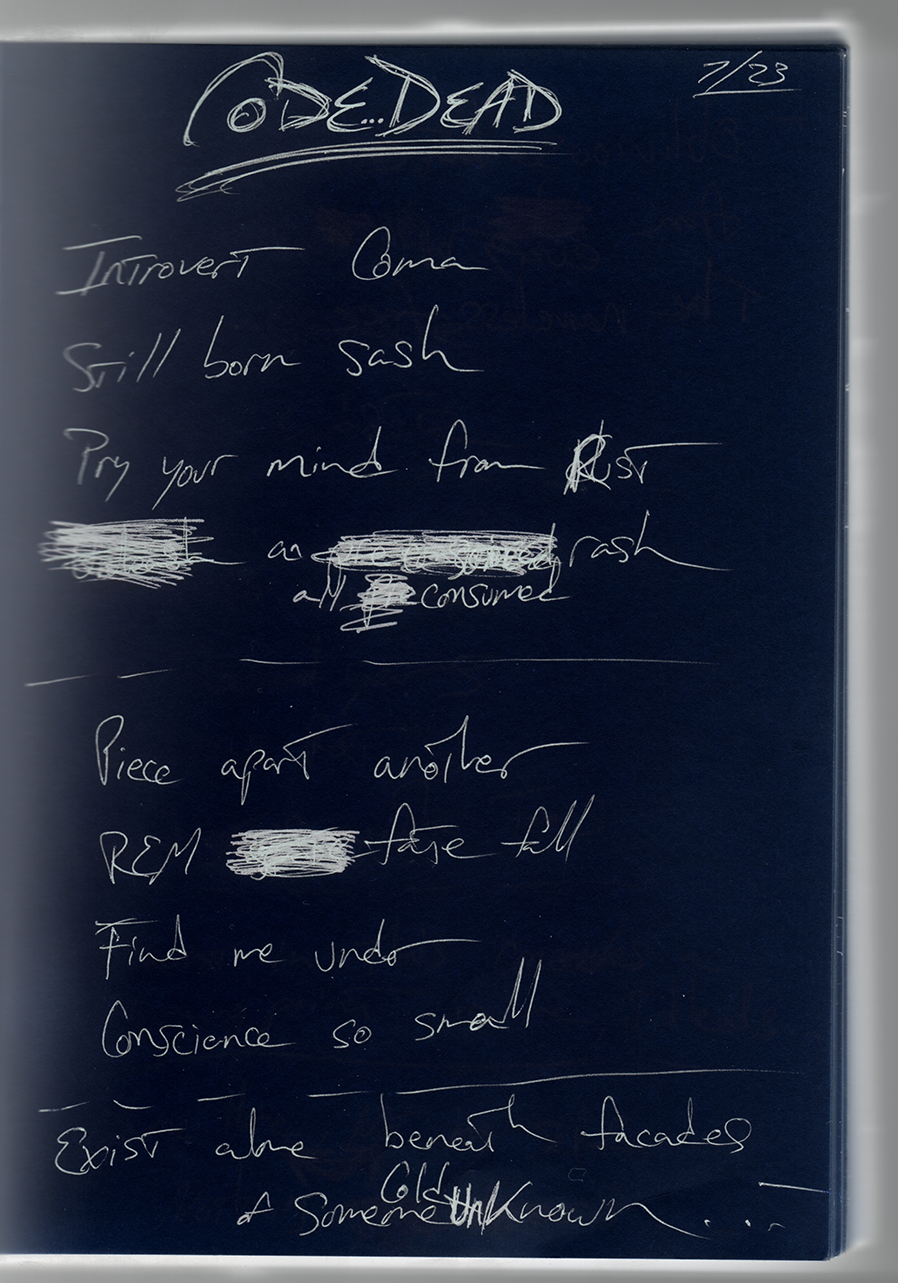 CODE...DEAD
7/23
Introvert Coma
Still born sash
Pry your mind from Rust
an rash
all consumed
Piece apart another
REM false fall
Find me under
Conscience so small
Exist alone beneath facades
of Someone Cold UnKnown...